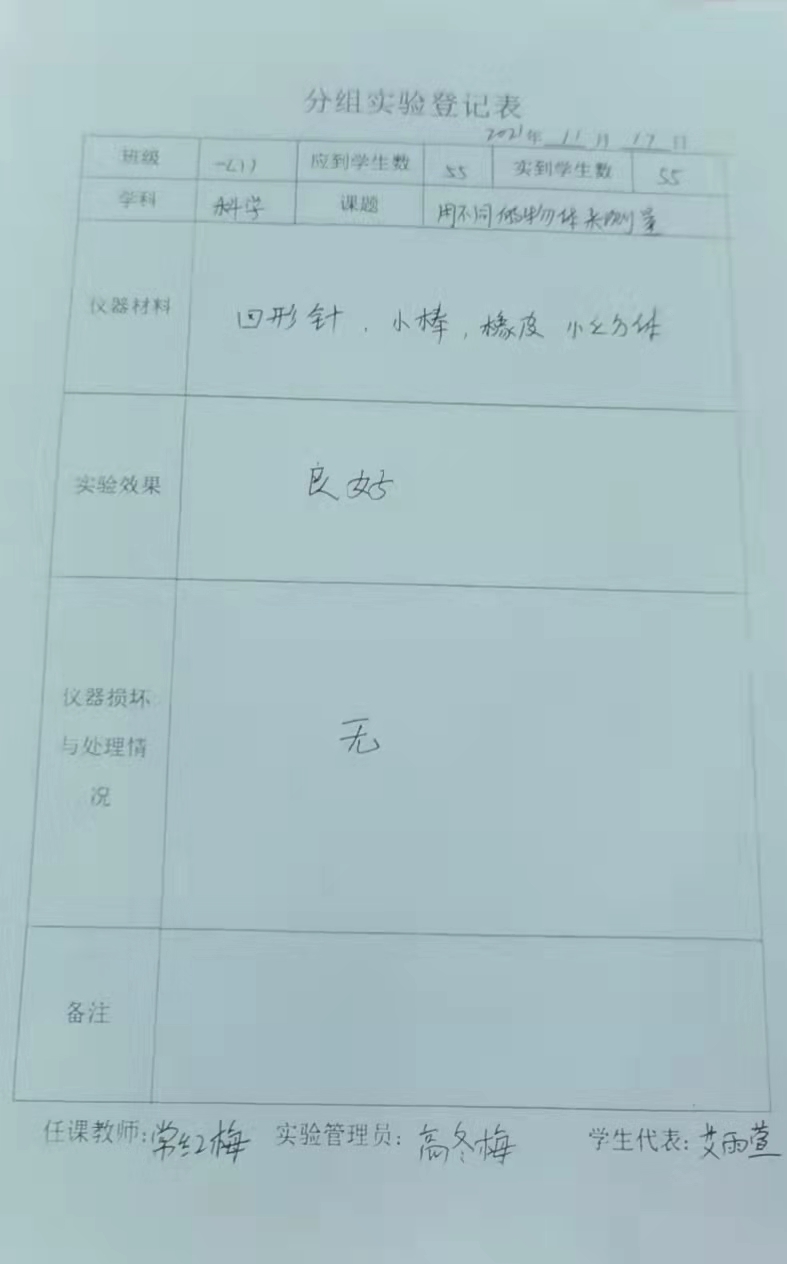 分组实验登记表
2021年 11 月 17 日
班级 一(1) 应到学生数 55 实到学生数 55
学科 科学 课题 用不同的物体来测量
仪器材料 回形针、小棒,橡皮 小立方体
实验效果 良好
仪器损坏
与处理情
况
无
备注
任课教师:常红梅 实验管理员:高冬梅 学生代表:艾雨萱